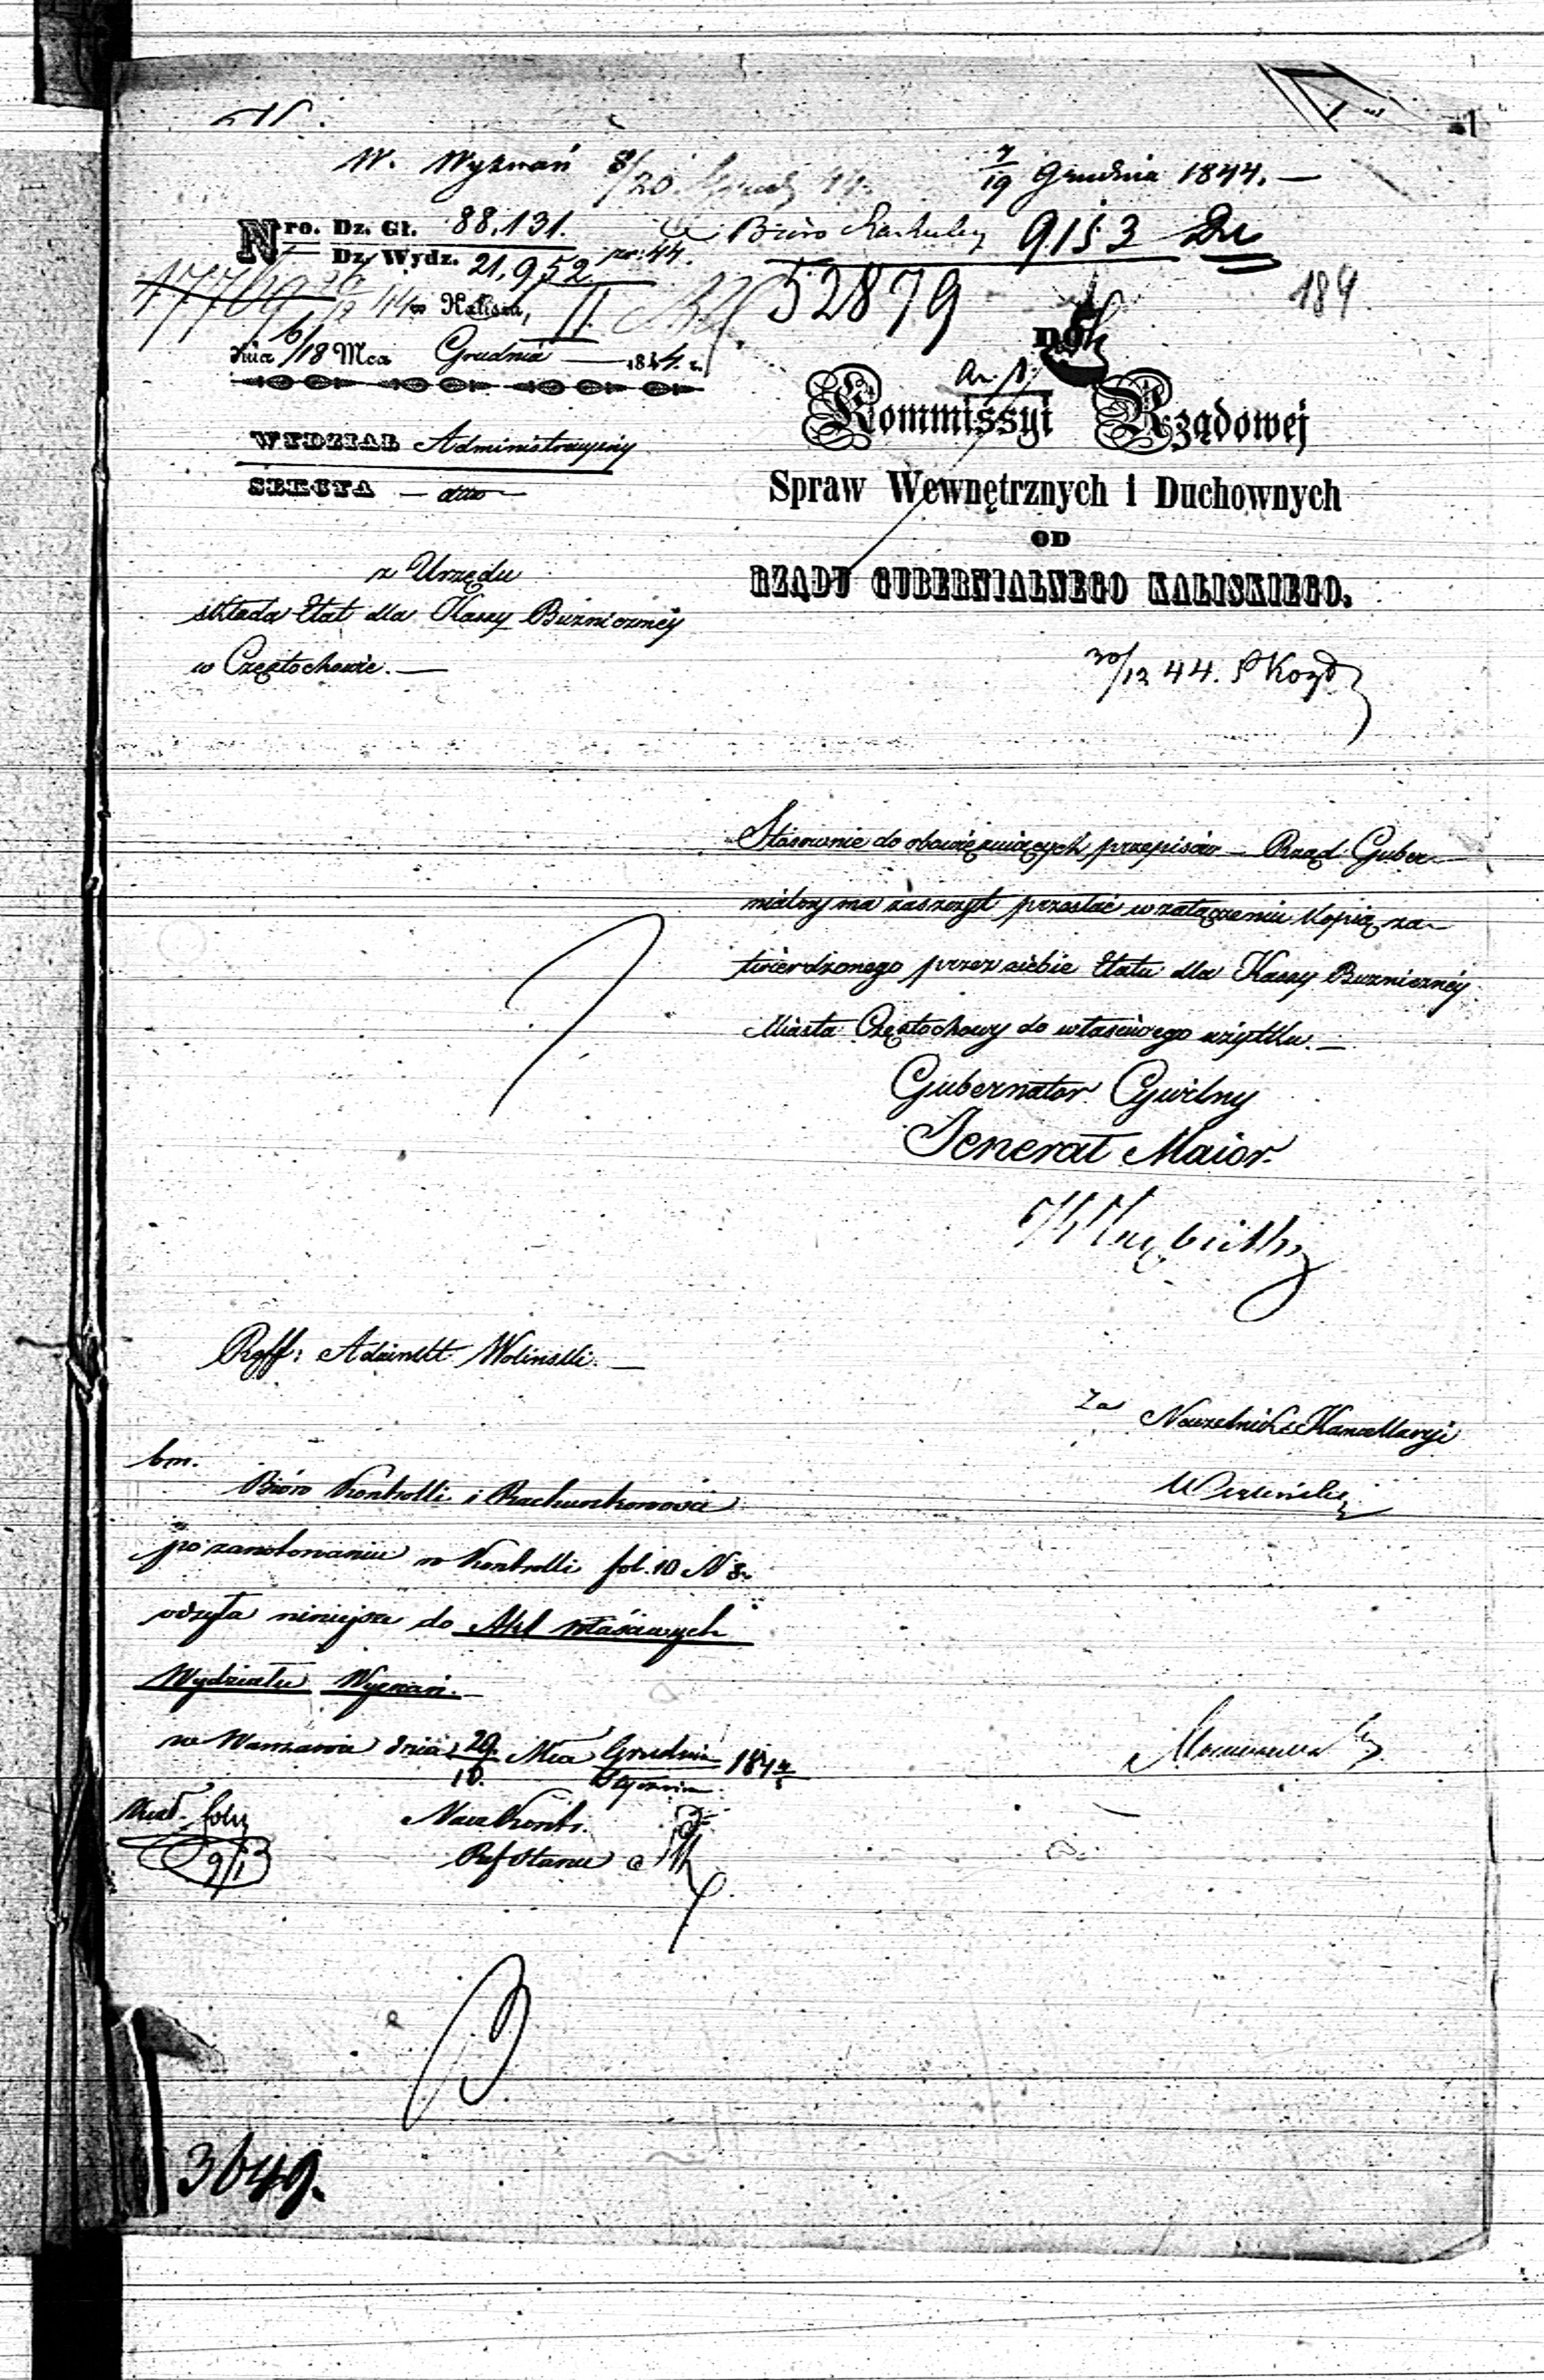 W. Wyznań 8/20 Grud 44. 7/19 Grudnia 1844. —
Nro. Dz. Gł. 88,131.
Biuro Rachuby 9153
Dz. Wydz. 21,952
52879
184
w Kaliszu, II
dnia 6/18 Mca Grudnia 1844. r.
DO
Kommissyi Rządowej
WYDZIAŁ Administracyiny
Spraw Wewnętrznych i Duchownych
SEKCYA
OD
RZĄDU GUBERNIALNEGO KALISKIEGO.
z Urzędu
składa Etat dla Kassy Bużniczney
w Częstochowie. —
30/12 44.
Stosownie do obowięzuiących przepisów — Rząd Guber-
nialny ma zaszczyt przesłać w załączeniu Kopią za-
twierdzonego przez siebie Etatu dla Kassy Bużniczney
Miasta Częstochowy do właściwego użytku. —
Gubernator Cywilny
Jenerał Maior.
Reff: Adiunkt Woliński. —
Za Naczelnika Kancellaryi
bm.
Biuro Kontrolli i Rachunkowości
po zanotowaniu w Kontrolli fol. 10 N 8.
odsyła niniejsze do Akt właściwych
Wydziału Wyznań. —
w Warszawie dnia 29/10 Mca Grudnia/Stycznia 184 4/5
Nacz Kontr.
3649.